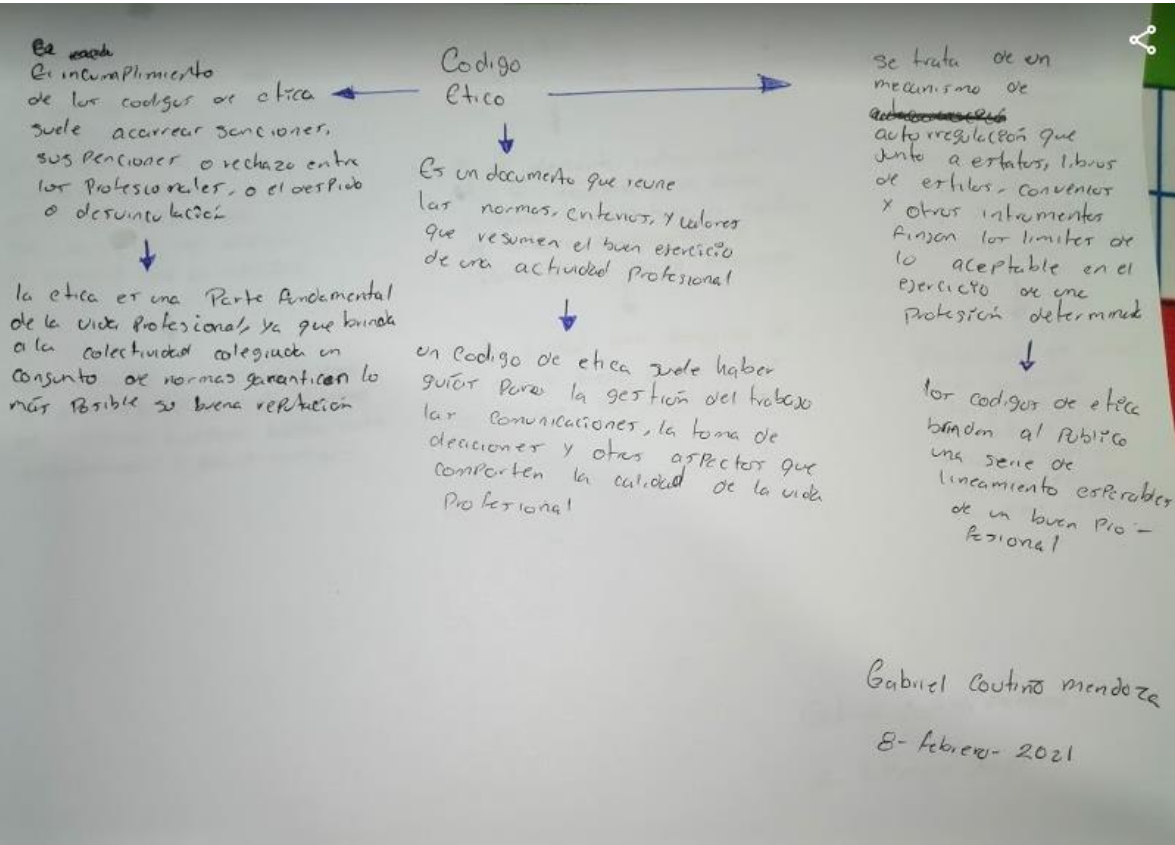 Codigo
Etico
El incumplimiento
de los codigos de etica
suele acarrear sanciones,
suspenciones o rechazo entre
los Profesionales, o el despido
o desvinculación
la etica es una Parte fundamental
de la vida Profesional, ya que brinda
a la colectividad colegiada un
consunto de normas garantican lo
más Posible su buena reputación
Es un documento que reune
las normas, criterios, y valores
que resumen el buen ejercicio
de una actividad Profesional
un Codigo de etica suele haber
guías para la gestión del trabajo
las comunicaciones, la toma de
deciciones y otros aspectos que
comporten la calidad de la vida
Profesional
se trata de un
mecanismo de
autorregulación que
Junto a estatos, libros
de estilos, convenios
y otros intrumentos
finjan los limites de
lo aceptable en el
ejercicio de una
Profesión determinada
los codigos de etica
brindan al Publico
una serie de
lineamiento esperables
de un buen Pro-
fesional
Gabriel Coutiño mendoza
8- febrero- 2021